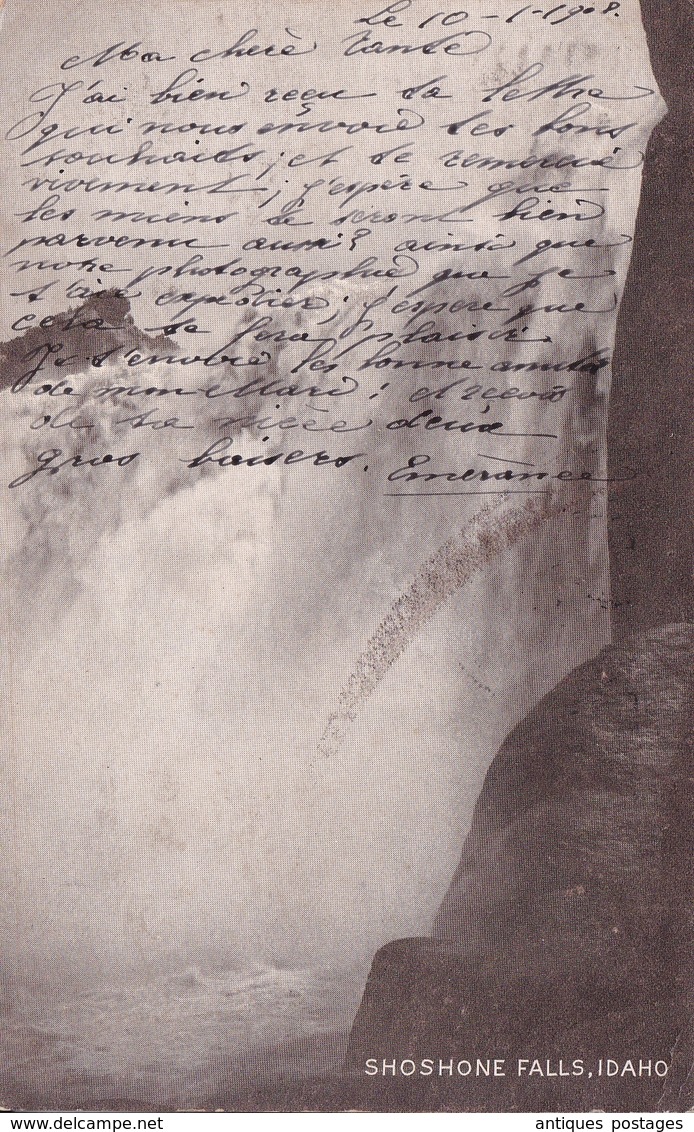 Le 10-1-1908.
Ma cherè Tante
J'ai bien reçu ta lettre
qui nous envoie tes bons
souhaits; et te remercie
vivement; j'espère que
les miens te seront bien
parvenu aussi? ainsi que
notre photographie que je
t'ai expédier; j'espere que
cela te fera plaisir.
Je t'envoie les bonne amitié
de mon Mari; et recois
de ta nièce deux
gros baisers. Emerance
SHOSHONE FALLS, IDAHO
antiques postages